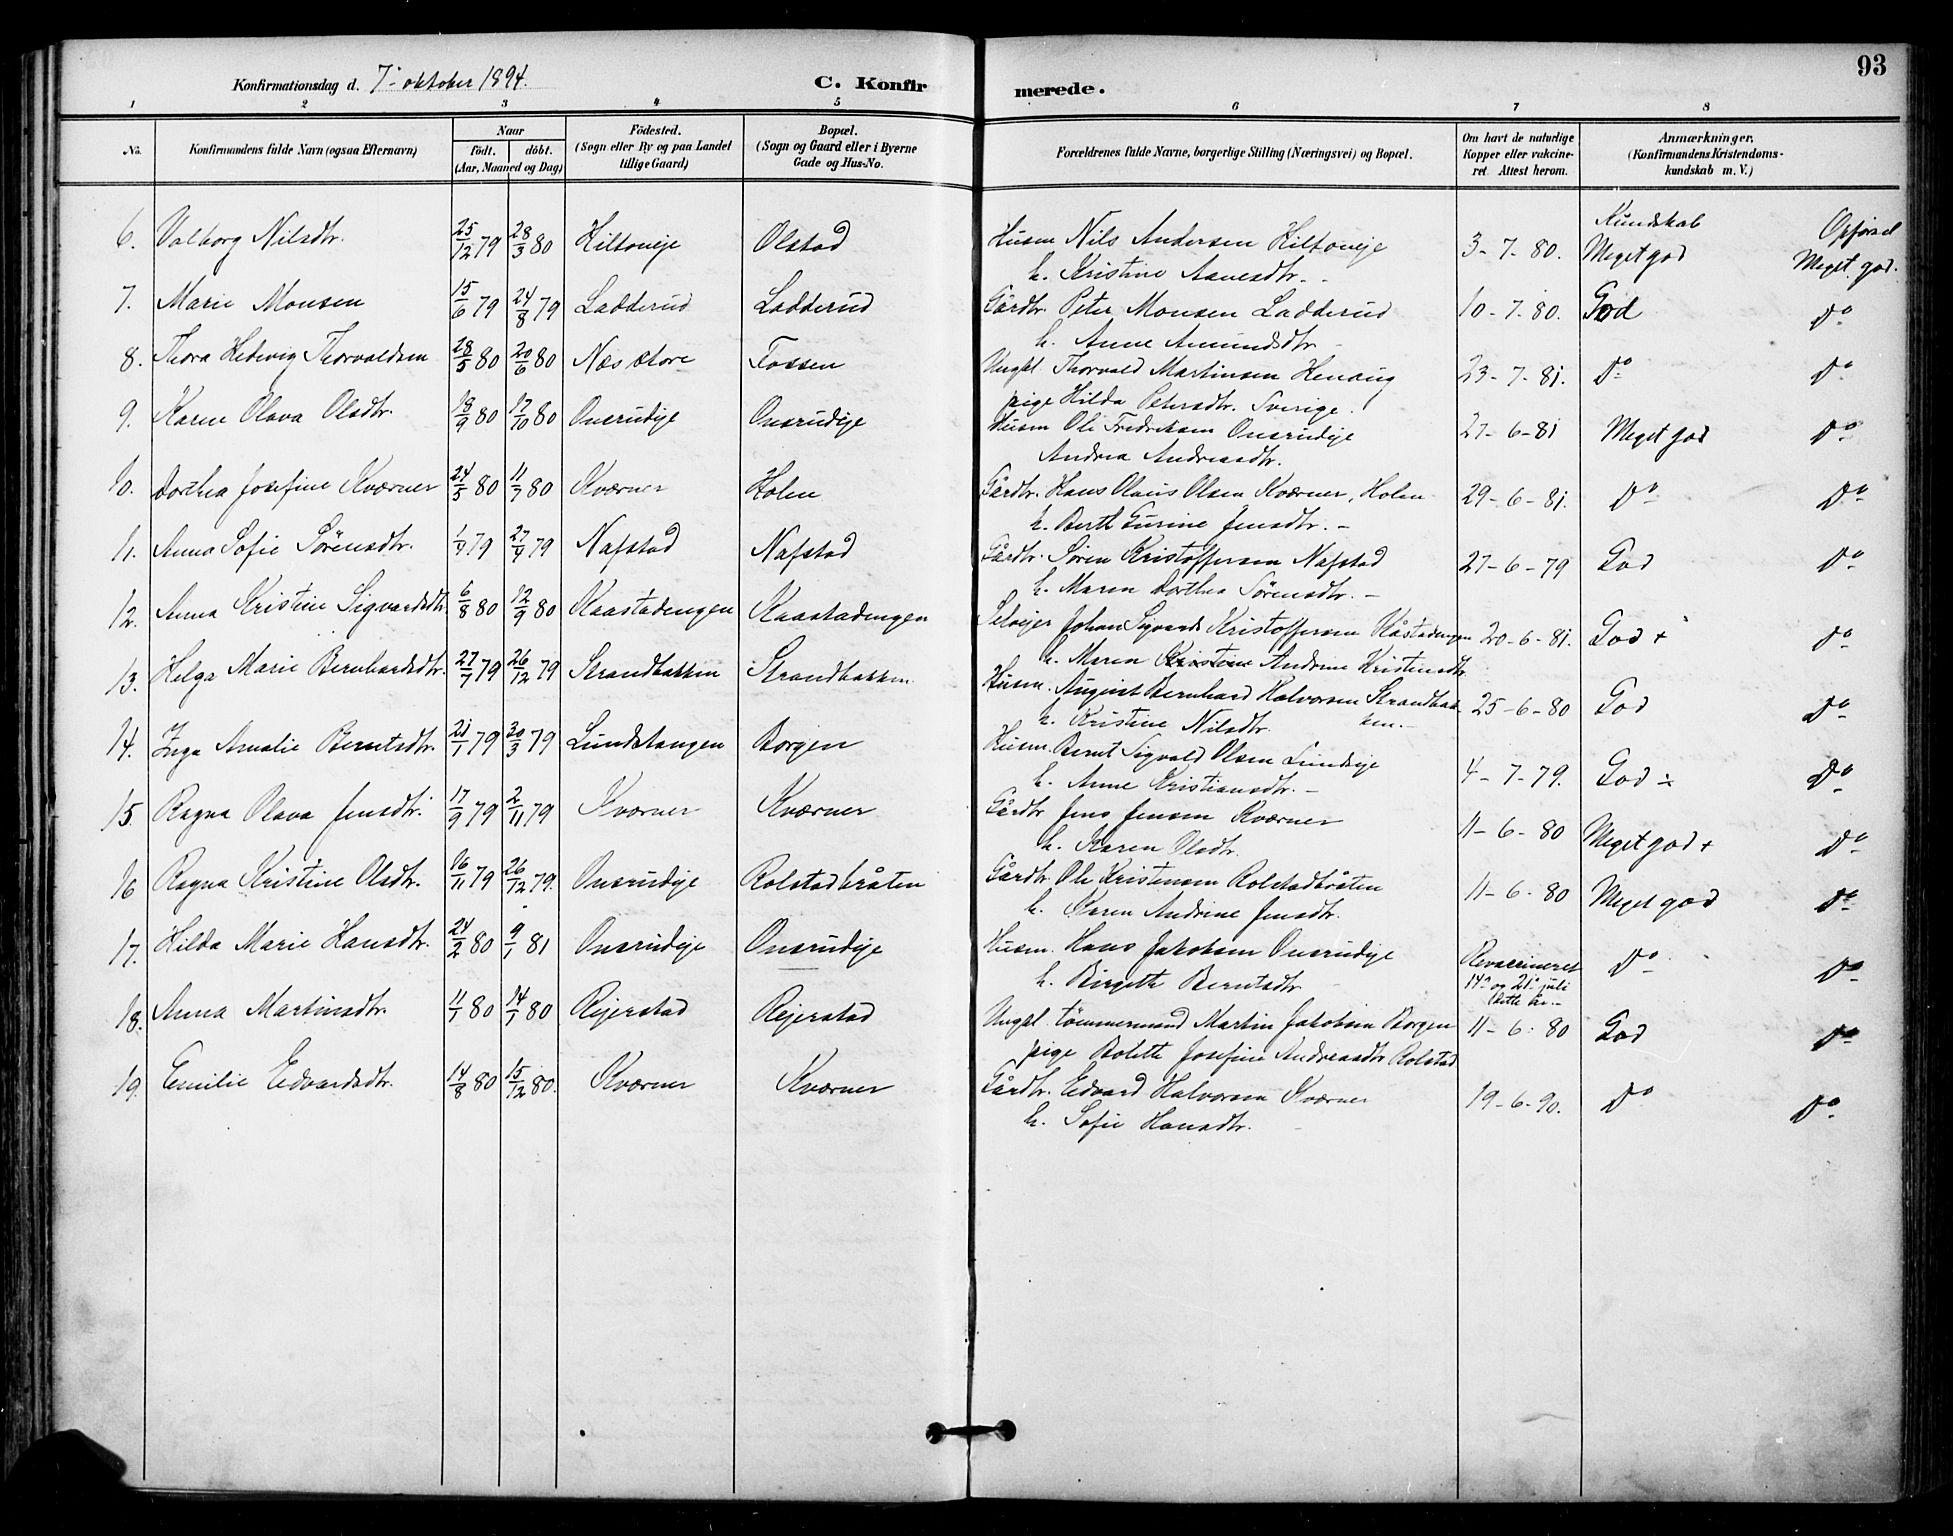 93
Konfirmationsdag d. 7de oktober 1894.
C. Konfirmerede.
1 2 3 4 5 6 7 8
No. Konfirmandens fulde Navn (ogsaa Efternavn) Naar födt. döbt. (Aar, Maaned og Dag) Födested. (Sogn eller By og paa Landet tillige Gaard) Bopæl. (Sogn og Gaard eller i Byerne Gade og Hus-No. Forældrenes fulde Navne, borgerlige Stilling (Næringsvei) og Bopæl. Om havt de naturlige Kopper eller vakcineret Attest herom. Anmærkninger, (Konfirmandens Kristendomskundskab m. V.)
Kundskab Opførsel
6. Valborg Nilsdtr. 25/12 79 28/3 80 Hiltoneje Olstad Husm Nils Andersen Hiltoneje 3-7-80. Meget god Meget god.
h. Kristine Aanesdtr. -
7. Marie Monsen 15/6 79 24/8 79 Ladderud Ladderud Gårdbr. Peter Monsen Ladderud 10-7-80. God Do
h. Anne Amundsdtr -
8. Thora Hedevig Thorvaldsen 28/5 80 20/6 80 Næs store Fossen Ungkl. Thorvald Martinsen Henaug 23-7-81. Do Do
pige Hilda Petersdtr. Sverige.
9. Karen Olava Olsdtr. 18/9 80 17/10 80 Onsrudeje Onsrudeje Husm Ole Fredriksen Onsrudeje 27-6-81 Meget god Do
Andrea Andreasdtr.
10. Dorthea Josefine Kværner 24/5 80 11/7 80 Kværner Holen Gårdbr. Hans Olaus Olsen Kværner, Holen 29-6-81. Do Do
h. Berth Gurine Jensdtr. -
11. Anna Sofie Sörensdtr. 79 27/4 79 Nafstad Nafstad Gårdbr. Sören Kristoffersen Nafstad 27-6-79 God Do
h. Maren Dorthea Sörensdtr. -
12. Anna Kristine Sigvardsdtr. 6/8 80 12/9 80 Kaastadengen Kaastadengen Selvejer Johan Sigvards Kristoffersen Kåstadengen 20-6-81. God + Do
h. Maren Kristine Andrine Kristensdtr.
13. Helga Marie Bernhardsdtr. 27/7 79 26/12 79 Strandbakken Strandbakken Husm. August Bernhard Halvorsen Strandbakken.- 25-6-80 God Do
h. Kristine Nilsdtr.
14. Inga Amalie Berntsdtr. 21/1 79 30/3 79 Lundstangen Borgen Husm. Bernt Sigvald Olsen Lundeje 4-7-79. God ÷ Do
h. Anne Kristiansdtr. -
15. Ragna Olava Jensdtr. 17/9 79 2/11 79 Kværner Kværner Gårdbr Jens Jensen Kværner 11-6-80 Meget god + Do
h. Karen Olsdtr.
16 Ragna Kristine Olsdtr. 16/11 79 26/12 79. Onsrudeje Rolstadbråten Gårdbr. Ole Kristensen Rolstadbråten 11-6-80 Meget god Do
h. Karen Andrine Jensdtr.
17. Hilda Marie Hansdtr. 24/2 80 9/1 81 Onsrudeje Onsrudeje Husm. Hans Jakobsen Onsrudeje Revaccineret 14de og 21de juli dette år.- Do Do
h. Birgitte Berntsdtr.
18. Anna Martinsdtr. 11/1 80 14/1 80 Rejerstad Rejerstad Ungkl. tömmermand Martin Jakobsen Borgen 11-6-80 God Do
pige Bolette Josefine Andreasdtr Rolstad
19. Emilie Edvardsdtr. 14/8 80 15/12 80. Kværner Kværner Gårdbr. Edvard Halvorsen Kværner 19-6-90. Do Do
h. Sofie Hansdtr. -